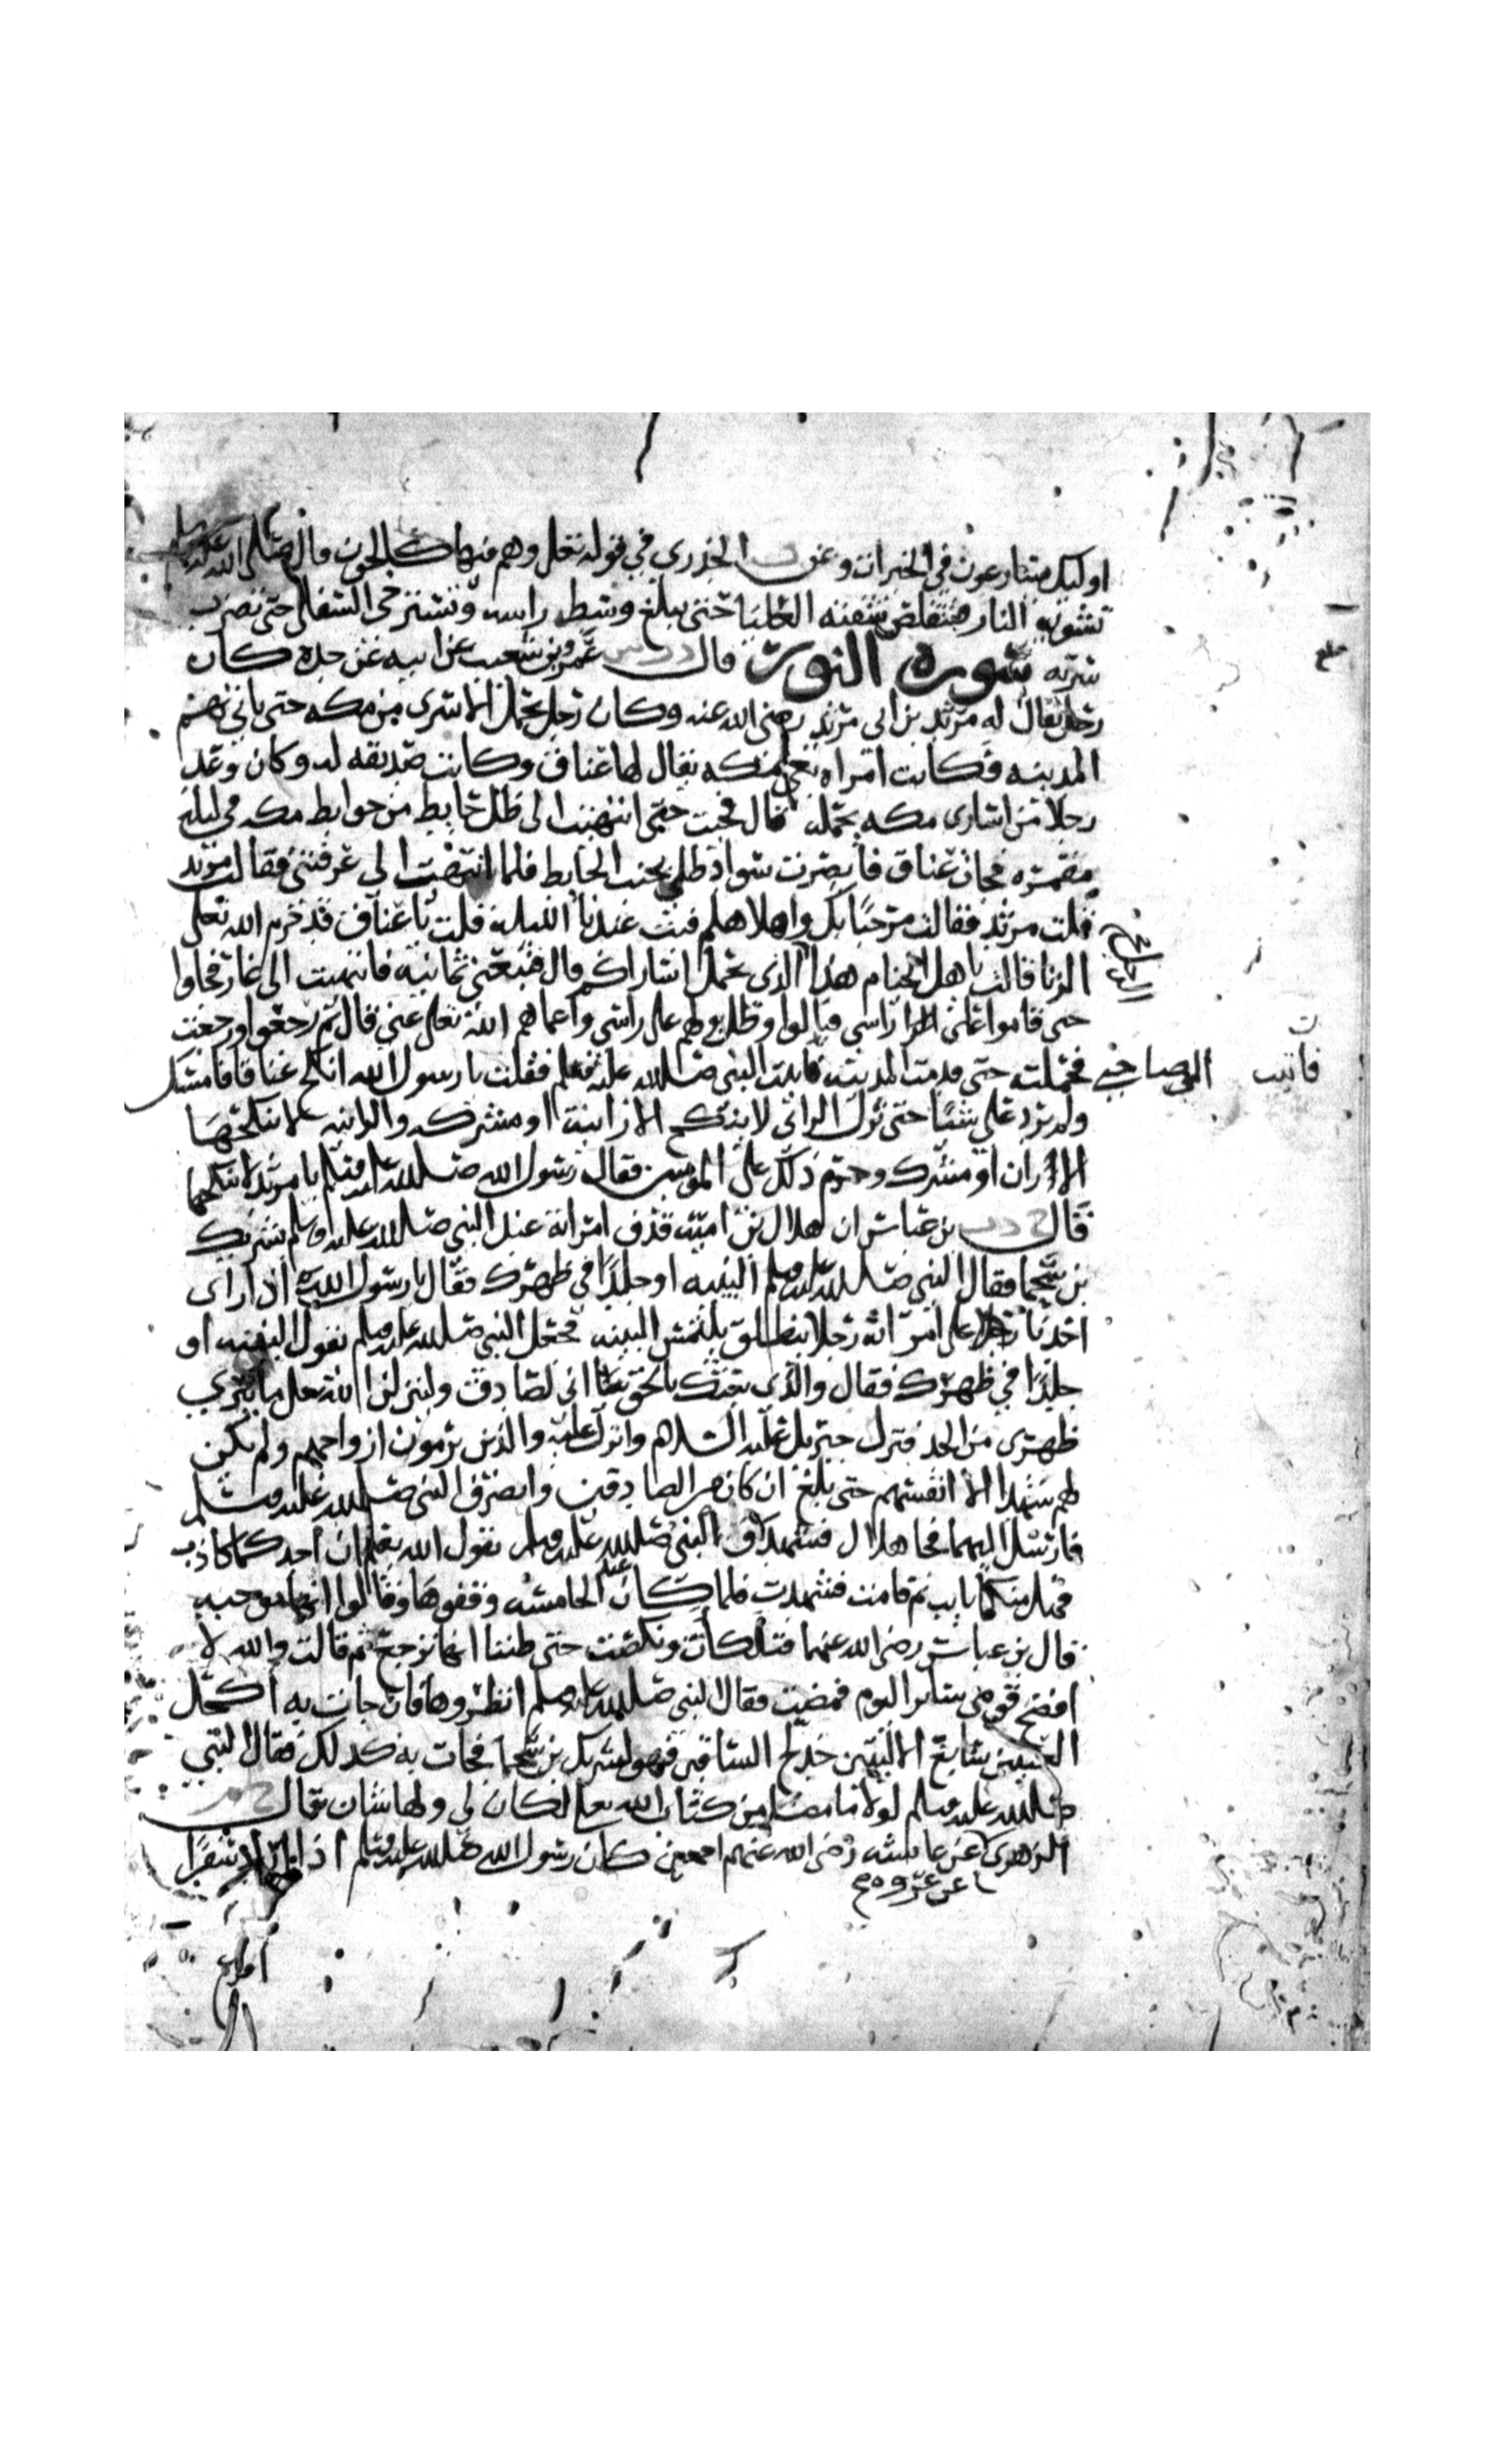 اوليك يسارعون في الخيرات وعن الخدري في قوله تعلى وهم فيها كالحون قال صلى الله عليه وسلم
تشويه النار فتتقلص شفته العليا حتى يبلغ وسط راسه وتسترخي السفلى حتى تضرب
سرته سورة النور قال عمرو بن شعيب عن ابيه عن جده كان
رجل يقال له مرثد بن ابي مرثد رضي الله عنه وكان رجل يحمل الاسرى من مكه حتى ياتي بهم
المدينه فكانت امراه بغي بمكه يقال لها عناق وكانت صديقه له وكان وعد
رجلا من اسارى مكه يحمله قال فجيت حتى انتهيت الى ظل حايط من حوايط مكه في ليلة
مقمره فجات عناق فابصرت سواد ظلي بجنب الحايط فلما انتهت الي عرفتني فقالت مرثد
قلت مرثد فقالت مرحبا بك واهلا هلم فبت عندنا الليله قلت يا عناق قد حرم الله تعلى
الزنا قالت يا هل الخيام هذا الذي يحمل اساراكم قال فتبعني ثمانيه فانتهيت الى غار فجاوا
حتى قاموا على راسي فبالوا وظل بولهم على راسي واعماهم الله تعلى عني قال ثم رجعوا ورجعت
الى صاحبي فحملته حتى قدمت المدينه فاتيت النبي صلى الله عليه وسلم فقلت يا رسول الله انكح عناقا فامسك
فاتيت
ولم يرد علي شيئا حتى نزل الزاني لا ينكح الا زانية او مشركه والزانيه لا ينكحها
الا زان او مشرك وحرم ذلك على المومنين فقال رسول الله صلى الله عليه وسلم يا مرثد لا تنكحها
قال بن عباس ان هلال بن امية قذف امراته عند النبي صلى الله عليه وسلم بشريك
بن سحما فقال النبي صلى الله عليه وسلم البينه او جلدا في ظهرك فقال يا رسول الله اذا راى
احدنا رجلا على امراته رجلا ينطلق يلتمس البينه فجعل النبي صلى الله عليه وسلم يقول البينه او
جلدا في ظهرك فقال والذي بعثك بالحق اني لصادق ولينزلن الله تعلى ما يبري
ظهري من الحد فنزل جبريل عليه السلام وانزل عليه والذين يرمون ازواجهم ولم يكن
لهم شهدا الا انفسهم حتى بلغ ان كان من الصادقين وانصرف النبي صلى الله عليه وسلم
فارسل اليهما فجا هلال فشهد والنبي صلى الله عليه وسلم يقول الله يعلم ان احدكما كاذب
فهل منكما تايب ثم قامت فشهدت فلما كان عند الخامسه وقفوها وقالوا انها موجبه
قال بن عباس رضي الله عنهما فتلكأت ونكصت حتى ظننا انها ترجع ثم قالت والله لا
افضح قومي ساير اليوم فمضت فقال النبي صلى الله عليه وسلم انظروها فان جات به اكحل
العينين سابغ الاليتين خدلج الساقين فهو لشريك بن سحما فجات به كذلك فقال النبي
صلى الله عليه وسلم لولا ما مضى من كتاب الله تعلى لكان لي ولها شان قال
الزهري عن عايشه رضي الله عنهم اجمعين كان رسول الله صلى الله عليه وسلم اذا اراد سفرا
عن عروه